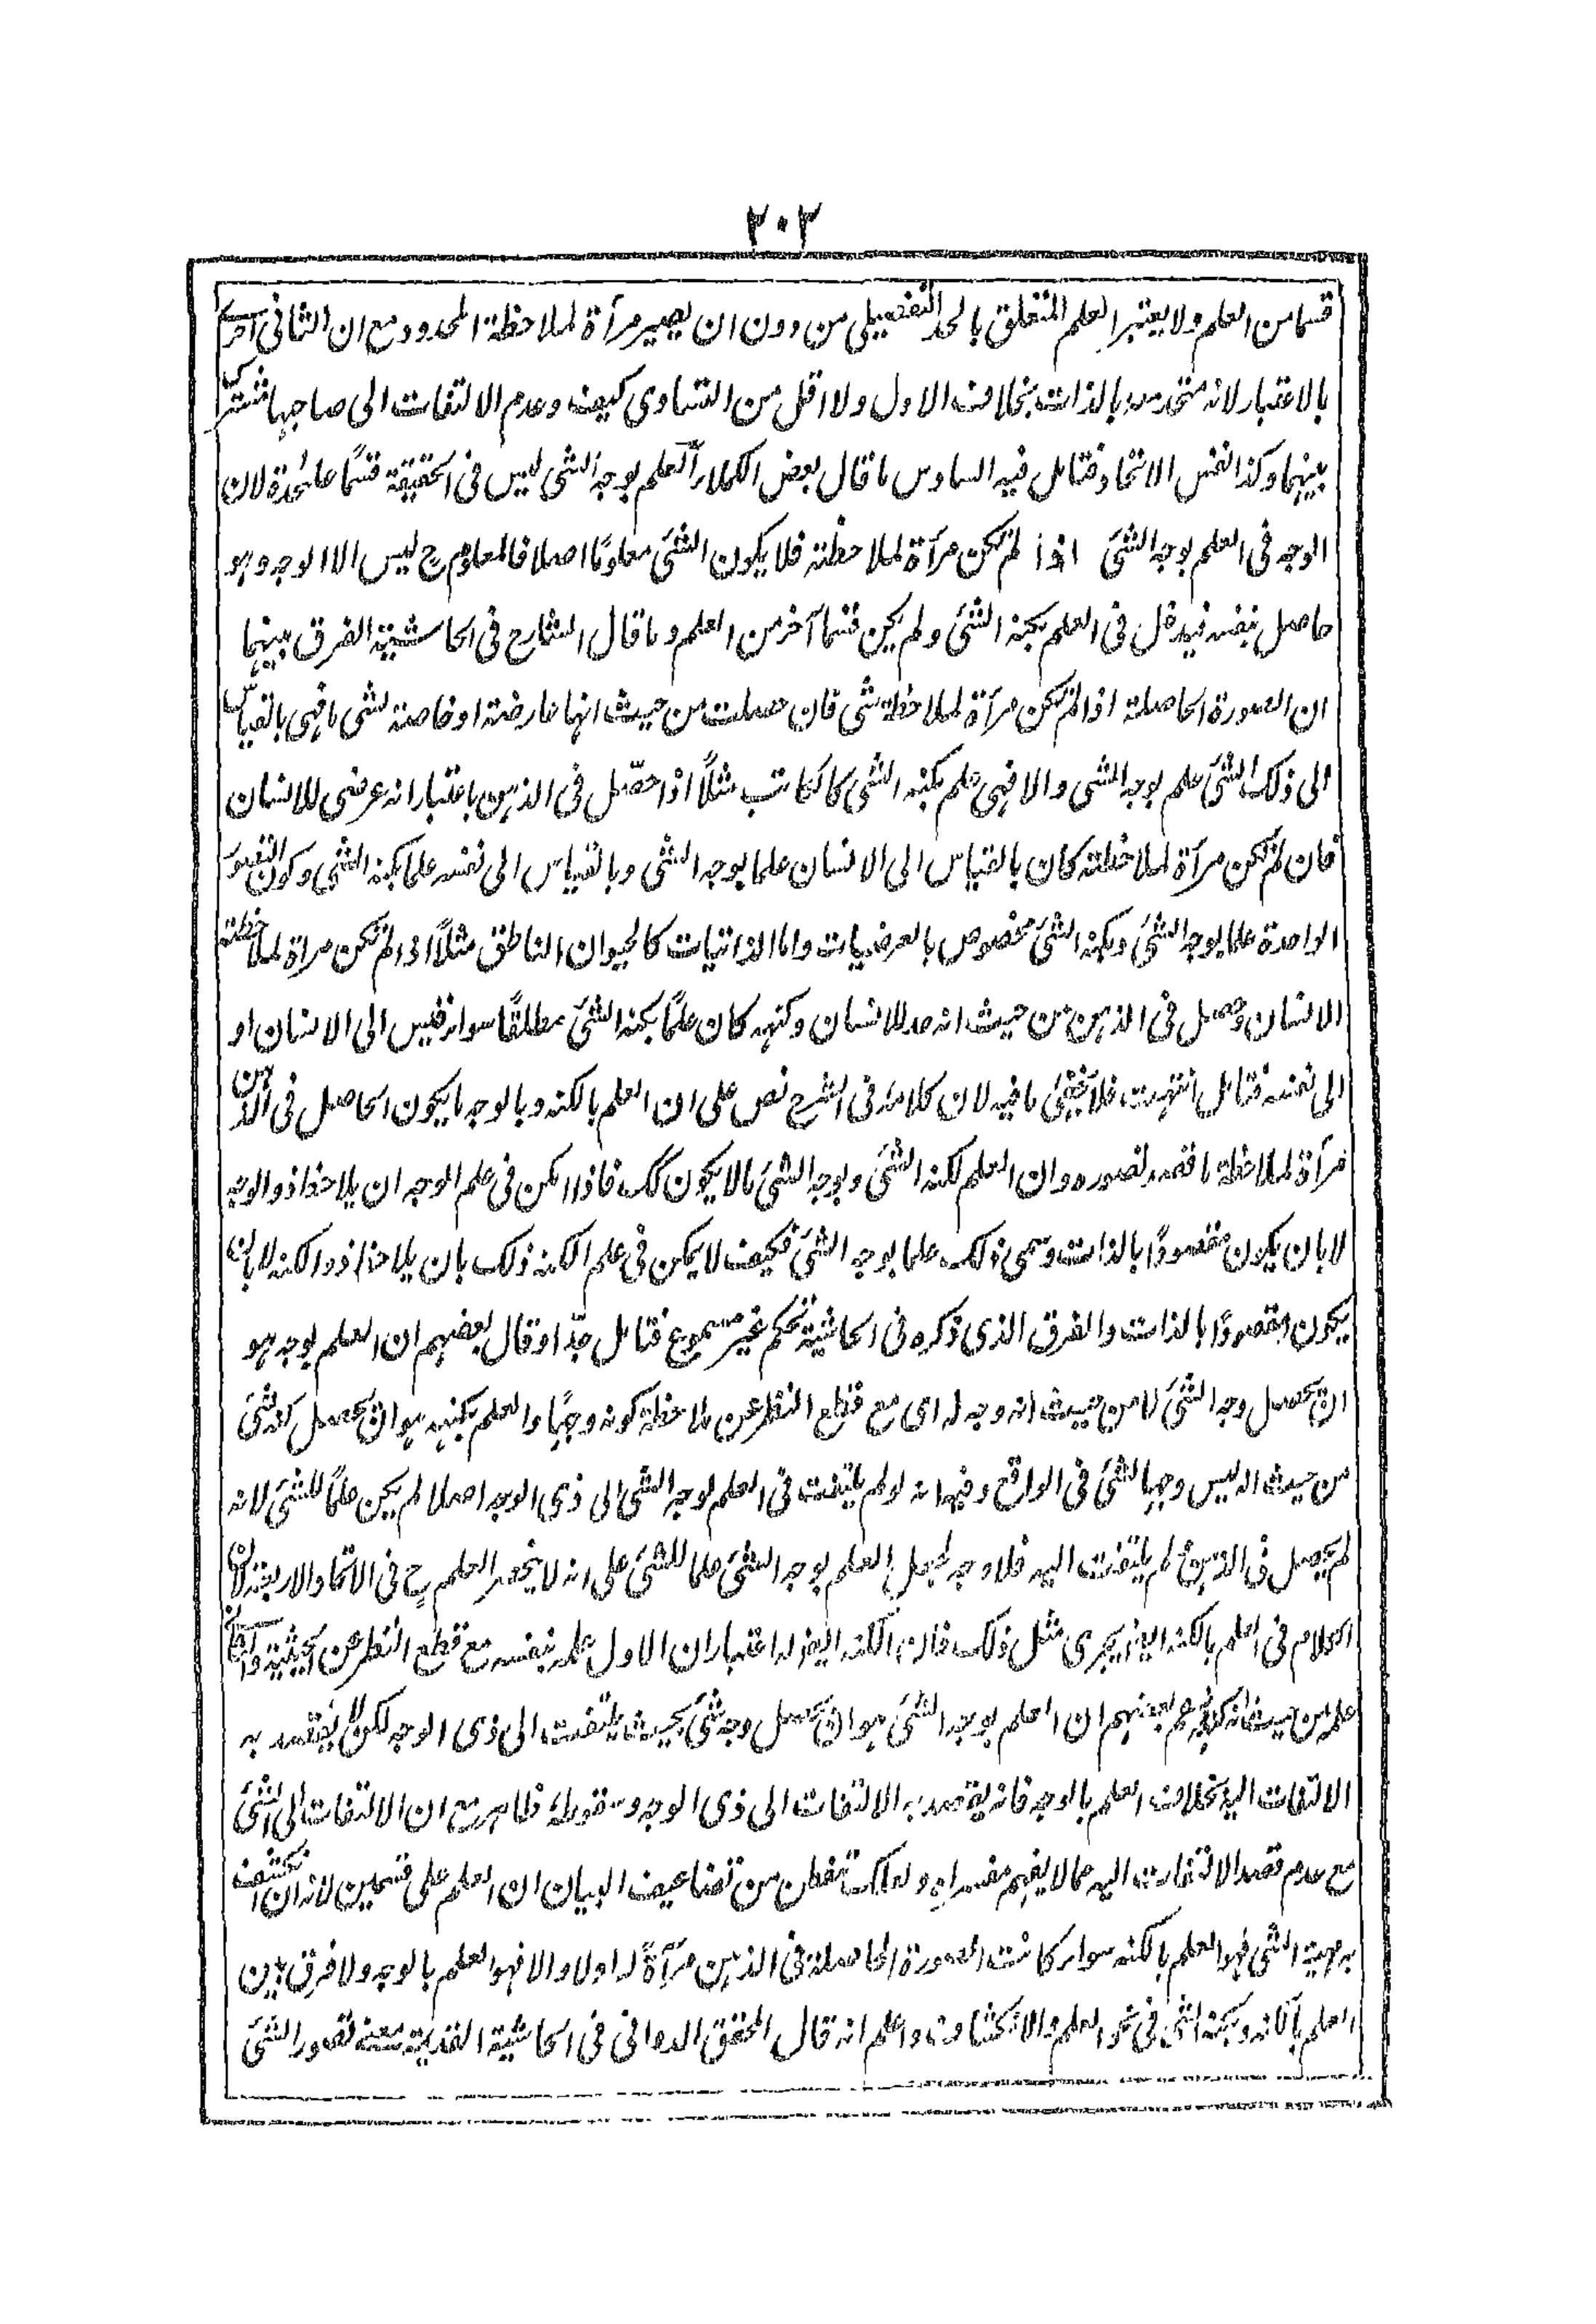 ٢٠٢
قسما من العلم ولا يعتبر العلم المتعلق بالحد التفصيلى من دون ان يصير مرآة لملاحظة المحدود مع ان الثانى احرى
بالاعتبار لانه متحد معه بالذات بخلاف الاول ولا اقل من التساوى كيف وعدم الالتفات الى صاحبها مشترك
بينهما وكذا نفس الاتحاد فتامل فيه السادس ما قال بعض الكملاء العلم بوجه الشئ ليس فى الحقيقة قسمًا علىٰحدة لان
الوجه فى العلم بوجه الشئ اذا لم تكن مرآة لملاحظته فلا يكون الشئ معلومًا اصلا فالمعلوم ح ليس الا الوجه وهو
حاصل بنفسه فيدخل فى العلم بكنه الشئ ولم يكن قسما آخر من العلم وما قال الشارح فى الحاشية الفرق بينهما
ان الصورة الحاصلة اذا لم تكن مرآة لملاحظة شئ فان حصلت من حيث انها عارضة او خاصة لشئ ما فهى بالقياس
الى ذلك الشئ علم بوجه الشئ والا فهى علم بكنه الشئ كالكاتب مثلًا اذا حصّل فى الذهن باعتبار انه عرضى للانسان
فان لم تكن مرآة لملاحظته كان بالقياس الى الانسان علما بوجه الشئ وبالقياس الى نفسه علما بكنه الشئ وكون الصورة
الواحدة علما بوجه الشئ وبكنه الشئ مخصوص بالعرضيات واما الذاتيات كالحيوان الناطق مثلًا اذا لم تكن مراة لملاحظته
الانسان وحصل فى الذهن من حيث انه حد للانسان وكنهه كان علمًا بكنه الشئ مطلقًا سواء قيس الى الانسان او
الى نفسه فتامل انتهت فلا يخفى ما فيه لان كلامه فى الشرح نص على ان العلم بالكنه وبالوجه ما يكون الحاصل فى الذهن
مرآة لملاحظة ما قصد تصوره وان العلم لكنه الشئ وبوجه الشئ ما لا يكون كك فاذا امكن فى علم الوجه ان يلاحظ ذو الوجه
لا بان يكون مقصودًا بالذات وسمى ذلك علما بوجه الشئ فكيف لا يمكن فى علم الكنه ذلك بان يلاحظ ذو الكنه لا بان
يكون مقصودًا بالذات والفرق الذى ذكره فى الحاشية تحكم غير مسموع فتامل جدّا وقال بعضهم ان العلم بوجه هو
ان يحصل وجه الشئ لا من حيث انه وجه له اى مع قطع النظر عن ملاحظة كونه وجهًا والعلم بكنهه هو ان يحصل كنه شئ
من حيث انه ليس وجها لشئ فى الواقع وفيه انه لو لم يلتفت فى العلم بوجه الشئ الى ذى الوجه اصلا لم يكن علمًا للشئ لانه
لم يحصل فى الذهن ولم يلتفت اليه فلا وجه لجعل العلم بوجه الشئ علما للشئ على انه لا ينحصر العلم ح فى الانحاء الاربعة لان
الكلام فى العلم بالكنه ايضا يجرى مثل ذلك فان الكنه ايضا له اعتباران الاول علمه بنفسه مع قطع النظر عن الحيثية والثانى
علمه من حيث انه كنه زعم بعضهم ان العلم بوجه الشئ هو ان يحصل وجه شئ بحيث يلتفت الى ذى الوجه لكن لا يقصد به
الالتفات اليه بخلاف العلم بالوجه فانه يقصد به الالتفات الى ذى الوجه وسقوطه ظاهر مع ان الالتفات الى الشئ
مع عدم قصد الالتفات اليه مما لا يفهم مفسراه ولعلك تفطن من تضاعيف البيان ان العلم على قسمين لانه ان انكشف
به مهية الشئ فهو العلم بالكنه سواء كانت الصورة الحاصلة فى الذهن مرآةً له اولا والا فهو العلم بالوجه ولا فرق بين
العلم بالكنه وبكنه الشئ فى نحو العلم والانكشاف واعلم انه قال المحقق الدوانى فى الحاشية القديمة معنى تصور الشئ